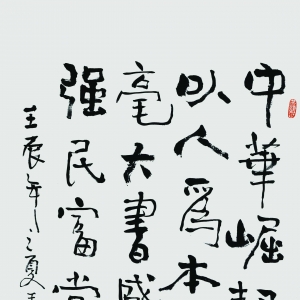 中華崛起
以人爲本
毫大書盛
强民富當
壬辰年之夏王